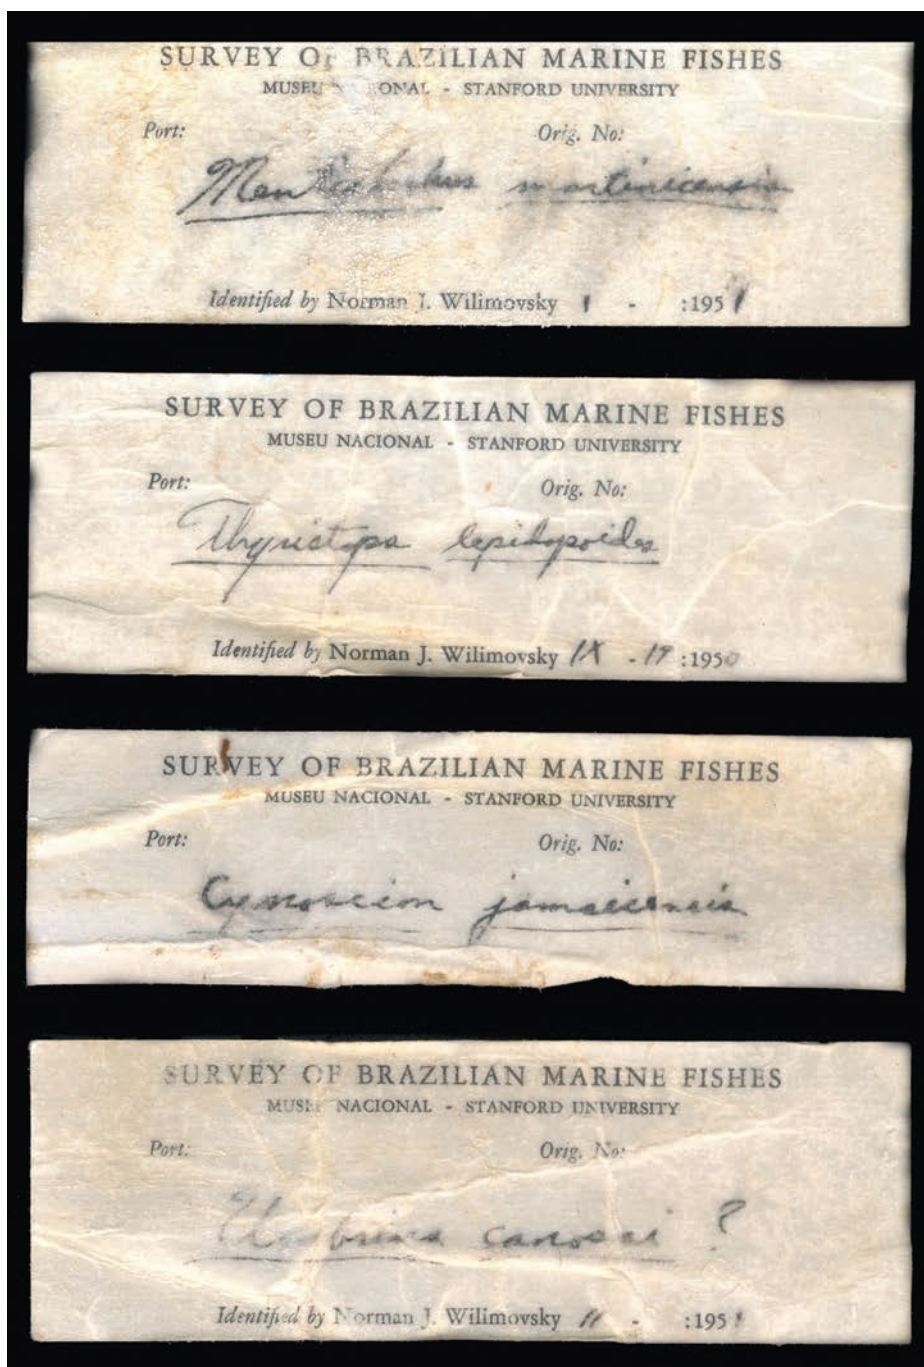 SURVEY OF BRAZILIAN MARINE FISHES
MUSEU NACIONAL - STANFORD UNIVERSITY
Port: Orig. No:
Menticirrhus martinicensis
Identified by Norman J. Wilimovsky 1 - :1951
SURVEY OF BRAZILIAN MARINE FISHES
MUSEU NACIONAL - STANFORD UNIVERSITY
Port: Orig. No:
lepidopoides
Identified by Norman J. Wilimovsky IX - 19 :1950
SURVEY OF BRAZILIAN MARINE FISHES
MUSEU NACIONAL - STANFORD UNIVERSITY
Port: Orig. No:
Cynoscion jamaicensis
SURVEY OF BRAZILIAN MARINE FISHES
MUSEU NACIONAL - STANFORD UNIVERSITY
Port: Orig. No:
Umbrina canosai ?
Identified by Norman J. Wilimovsky 11 - :1951